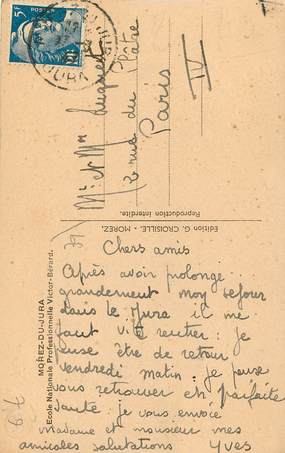 5F
JURA
Mr et Mme
2 rue du Plâtre
Paris
IV
Reproduction interdite.
Edition G. CROISILLE - MOREZ.
MOREZ-DU-JURA
Ecole Nationale Professionnelle Victor-Bérard.
Chers amis
Après avoir prolongé
grandement moy sejour
dans le Jura il me
faut vite rentrer : je
pense être de retour
vendredi matin : je pense
vous retrouver en parfaite
santé : je vous envoie
madame et monsieur mes
amicales salutations Yves